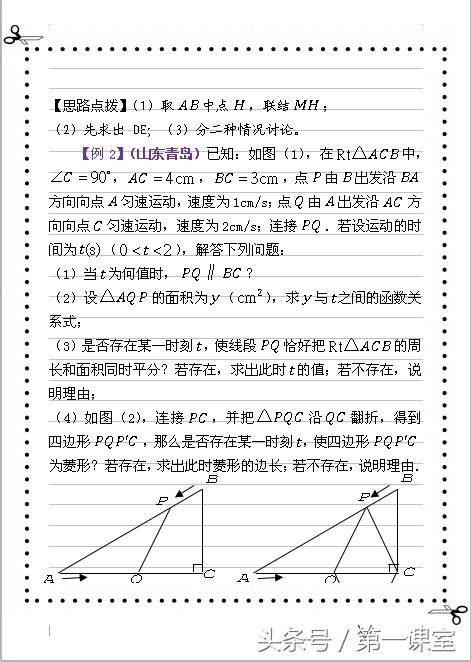 【思路点拨】(1) 取 AB 中点 H , 联结 MH ;
(2) 先求出 DE; (3) 分二种情况讨论。
【例 2】(山东青岛) 已知: 如图 (1), 在 Rt△ACB 中,
∠C = 90°, AC = 4cm , BC = 3cm , 点 P 由 B 出发沿 BA
方向向点 A 匀速运动, 速度为 1cm/s; 点 Q 由 A 出发沿 AC 方
向向点 C 匀速运动, 速度为 2cm/s; 连接 PQ . 若设运动的时
间为 t(s) ( 0 < t < 2 ), 解答下列问题:
(1) 当 t 为何值时, PQ ∥ BC ?
(2) 设 △AQP 的面积为 y ( cm² ), 求 y 与 t 之间的函数关
系式;
(3) 是否存在某一时刻 t , 使线段 PQ 恰好把 Rt△ACB 的周
长和面积同时平分? 若存在, 求出此时 t 的值; 若不存在, 说
明理由;
(4) 如图 (2), 连接 PC , 并把 △PQC 沿 QC 翻折, 得到
四边形 PQP′C , 那么是否存在某一时刻 t , 使四边形 PQP′C
为菱形? 若存在, 求出此时菱形的边长; 若不存在, 说明理由.
B B
P P
A Q C A Q C
头条号 / 第一课室